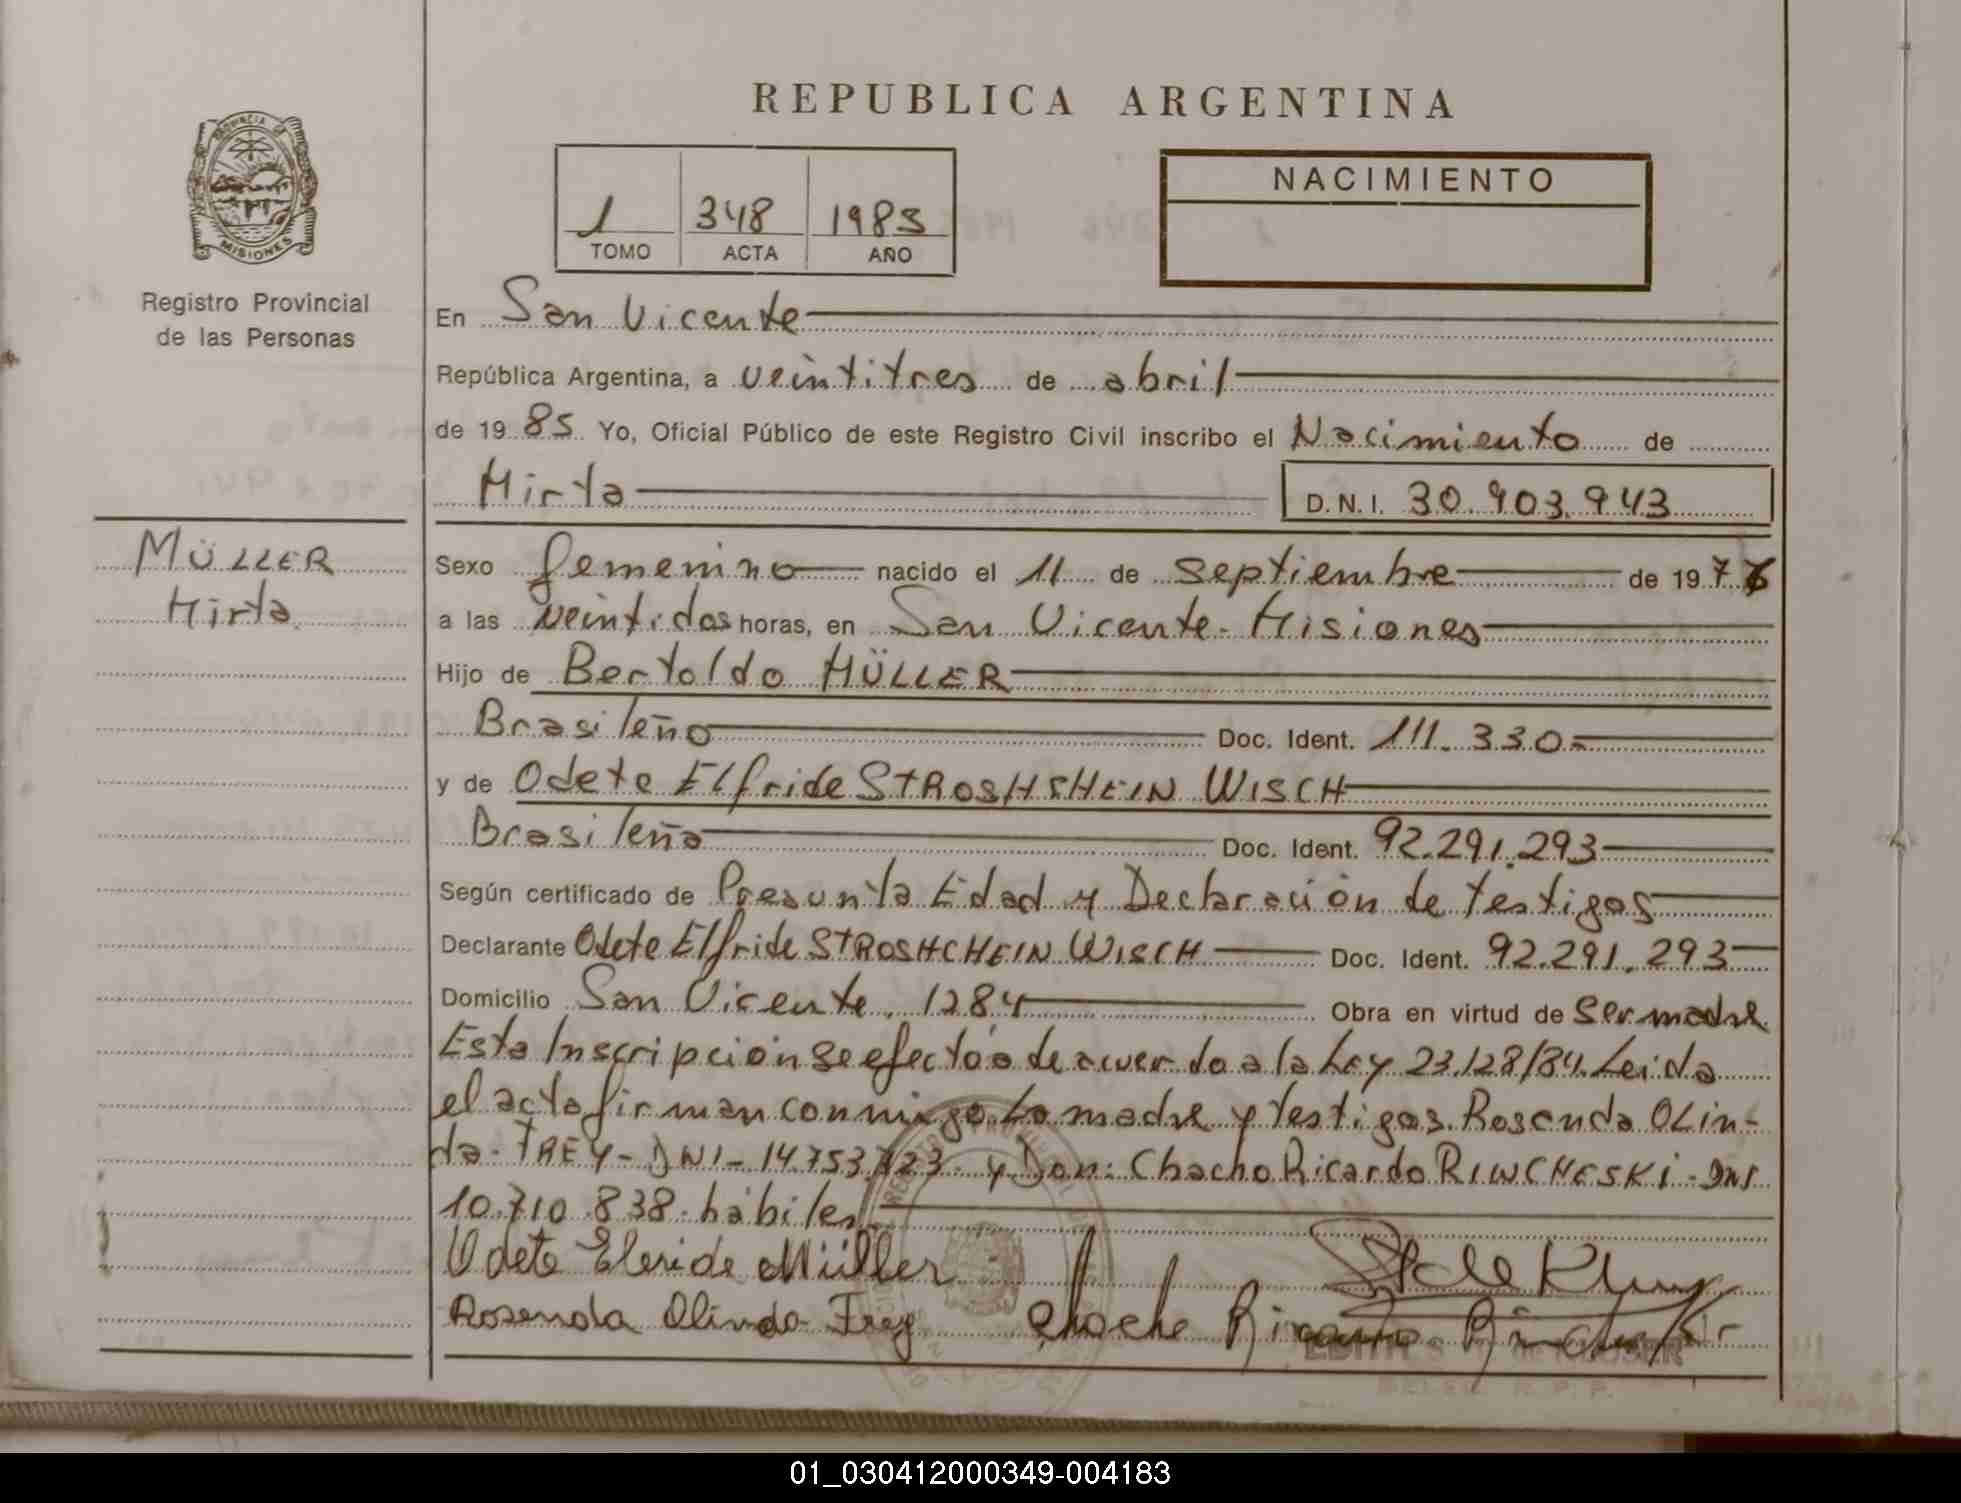 REPUBLICA ARGENTINA
PROVINCIA DE
MISIONES
Registro Provincial
de las Personas
1 348 1985
TOMO ACTA AÑO
NACIMIENTO
En San Vicente
República Argentina, a veintitres de abril
de 19 85 Yo, Oficial Público de este Registro Civil inscribo el Nacimiento de
Mirta D.N.I. 30.903.943
MÜLLER
Mirta
Sexo femenino nacido el 11 de septiembre de 19 76
a las veintidos horas, en San Vicente - Misiones
Hijo de Bertoldo MÜLLER
Brasileño Doc. Ident. 111.330
y de Odete Elfride STROSHSHEIN WISCH
Brasileña Doc. Ident. 92.291.293
Según certificado de Presunta Edad y Declaración de testigos
Declarante Odete Elfride STROSHCHEIN WISCH Doc. Ident. 92.291.293
Domicilio San Vicente, 1284 Obra en virtud de ser madre
Esta Inscripción se efectóo de acuerdo a la Ley 23.128/84. Leida
el acta firman conmigo La madre y testigos. Rosenda OLin-
da - FREY - DNI - 14.753. y Don: Chacho Ricardo RIWCHESKI - DNI
10.710.838 - hábiles
Odete Eleride Müller
Rosenda Olinda Frey
01_030412000349-004183